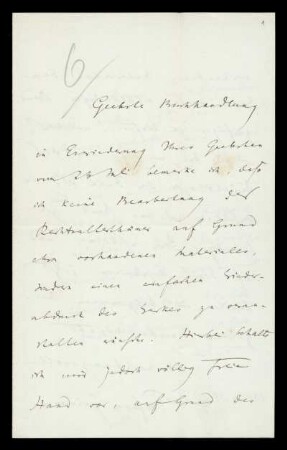 6/
Geehrte Buchhandlung
in Erwiederung Ihres Geehrten
vom 24 Mts bemerke ich, daß
ich keine Bearbeitung der
Rechtsalterthümer auf Grund
etwa vorhandenen Materiales,
sondern einen einfachen Wieder-
abdruck des Werkes zu veran-
stalten wünsche. Hierbei behalte
ich mir jedoch völlig freie
Hand vor, auf Grund des